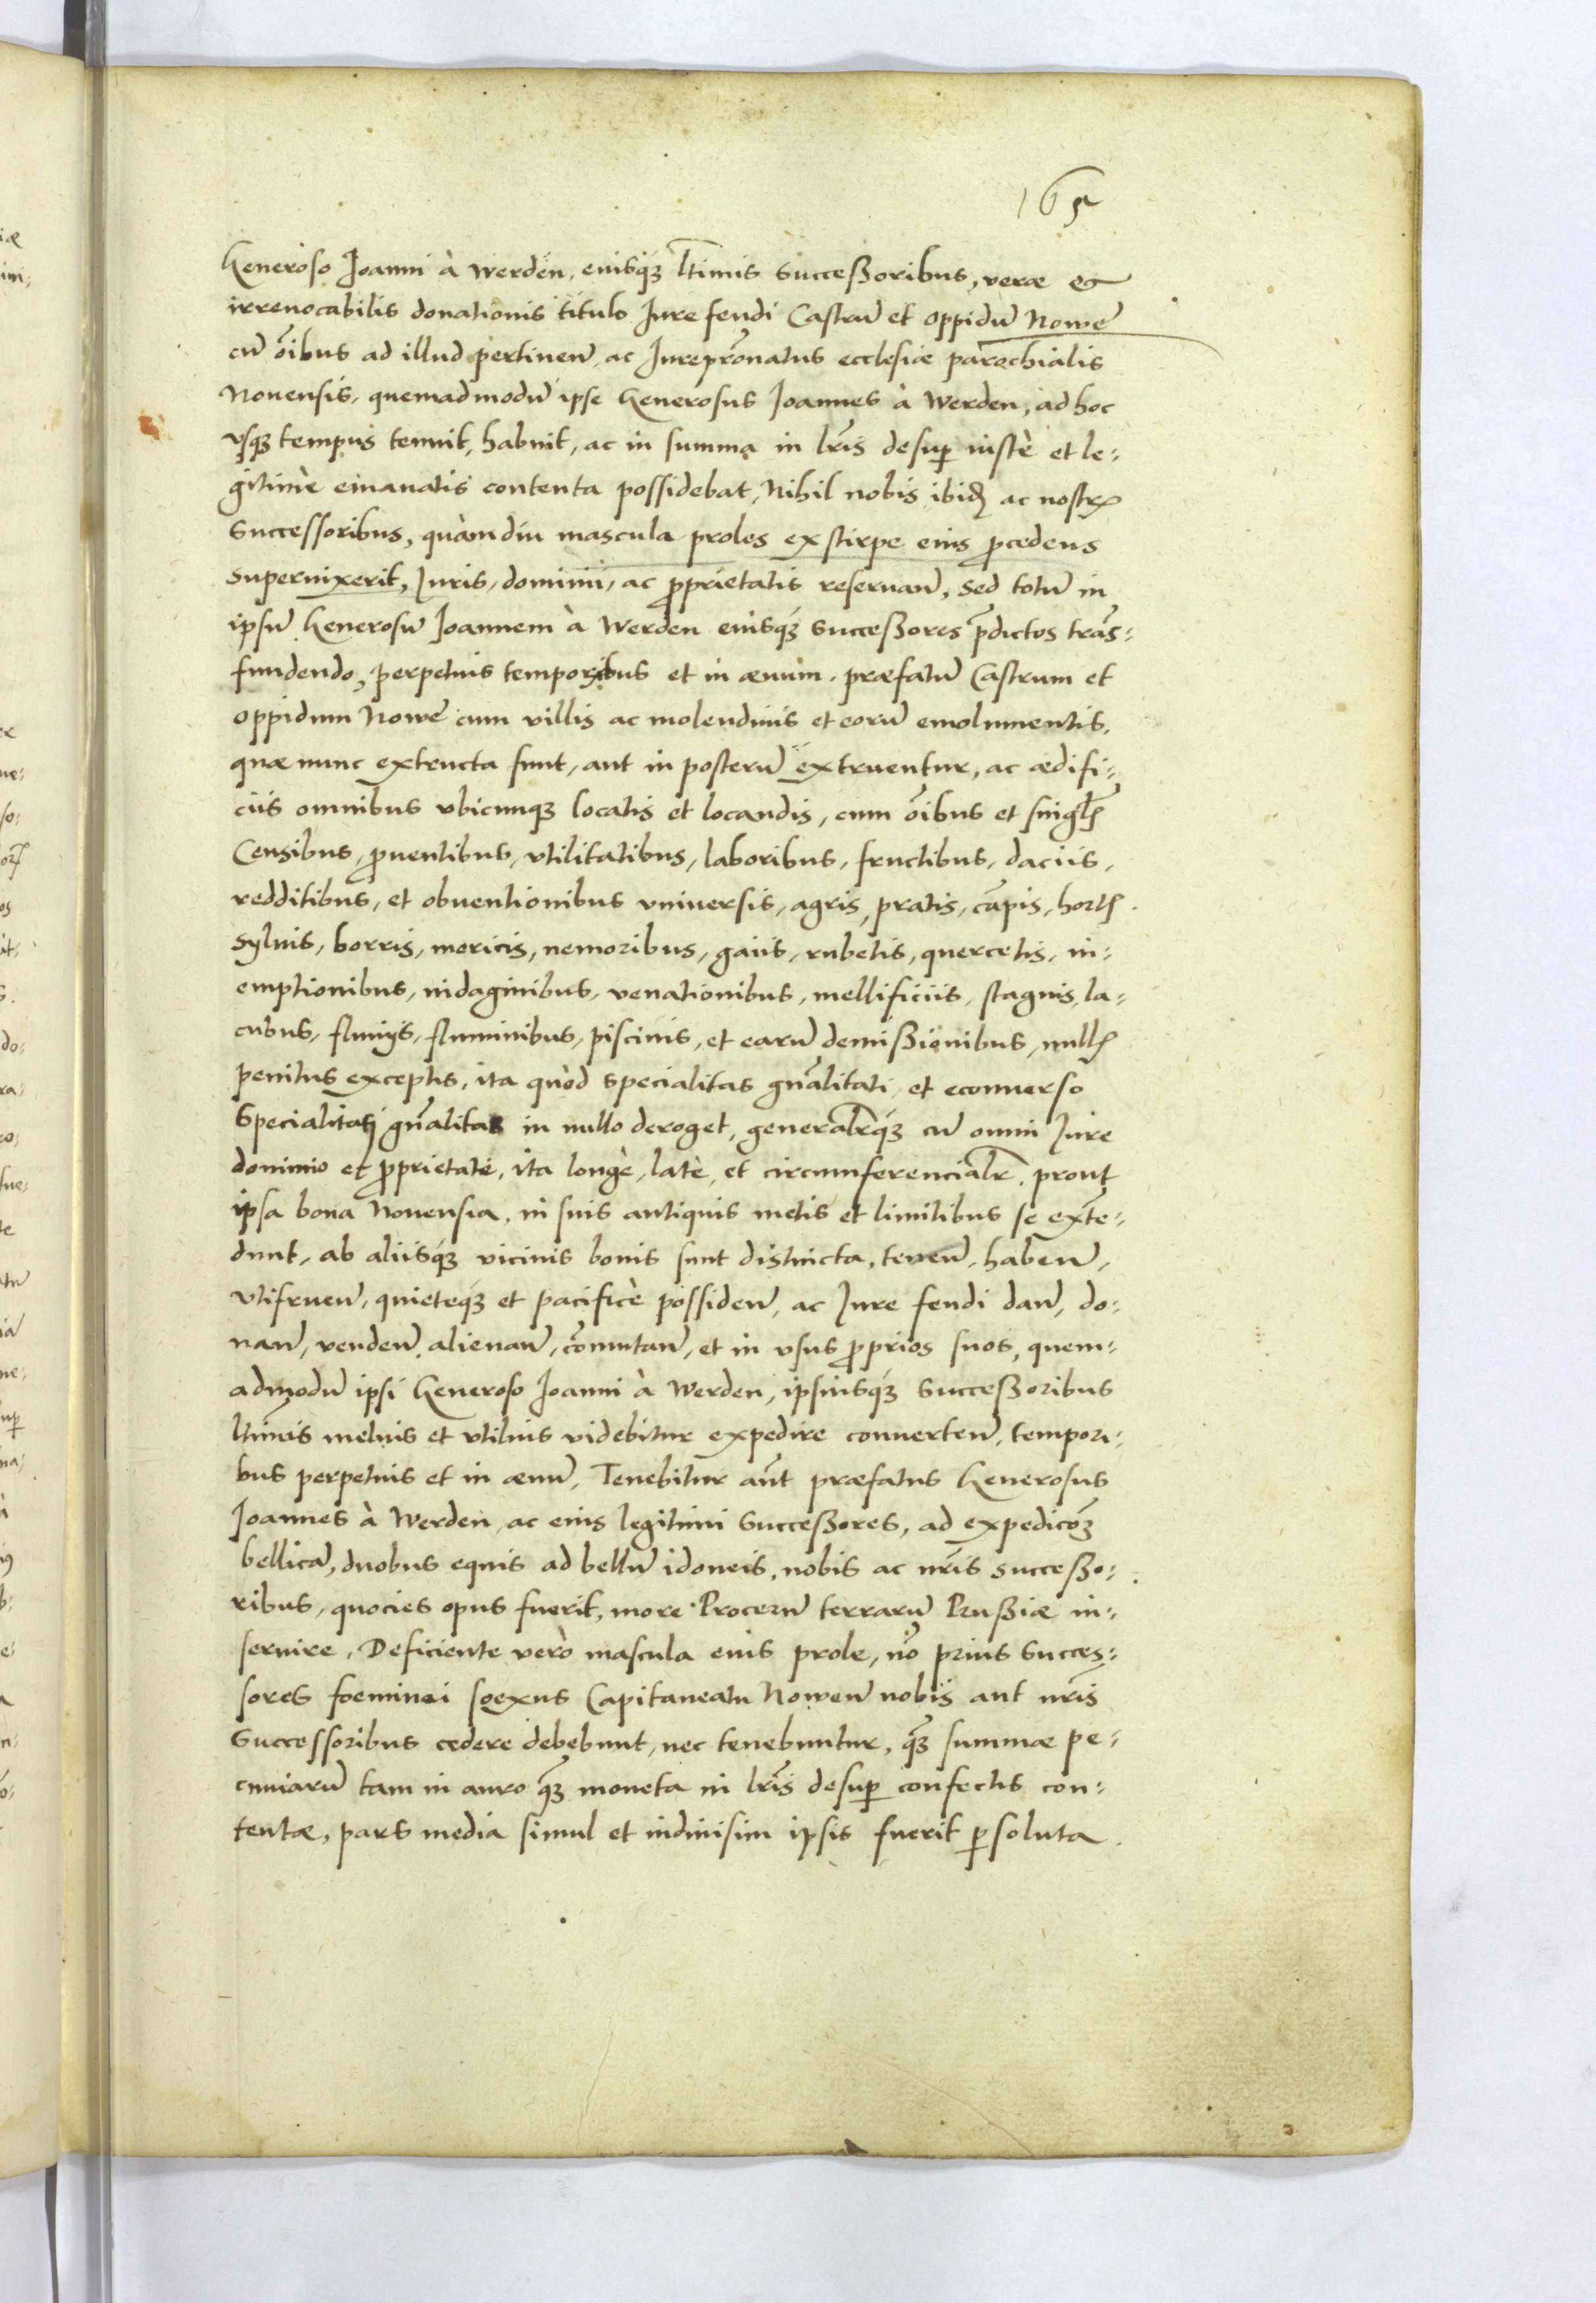 165
Generoso Ioanni à Werden, eiusq3 ltimis Succeßoribus, veræ et
irreuocabilis donationis titulo Iure feudi Castrū et oppidū Nowe
cū oībus ad illud pertineñ, ac Iurepr̃onatus ecclesiæ parochialis
Nouensis, quemadmodū ipse Generosus Ioannes à Werden, ad hoc
vsq3 tempus tenuit, habuit, ac in summa in lr̃is desuꝑ iustè et le:
gitimè emanatis contenta possidebat, Nihil nobis ibidꝫ ac nostrꝭ
Successoribus, quàmdiu mascula proles ex stirpe eius ꝓcedens
superuixerit, Iuris, dominii, ac ꝓprietatis reseruañ, sed totū in
ipsū Generosū Ioannem à Werden eiusq́3 succeßores p̃dictos trãs:
fundendo, perpetuis temporibus et in æuum. præfatū Castrum et
oppidum Nowe cum villis ac molendinis et eorū emolumentis,
quæ nunc extructa sunt, aut in posterū extruentur, ac ædifi:
ciis omnibus vbicunq3 locatis et locandis, cum oībus et singlꝭ
Censibus, ꝓuentibus, vtilitatibus, laboribus, fructibus, daciis,
redditibus, et obuentionibus vniuersis, agris, pratis, cãpis, hortꝭ
Syluis, borris, mericis, nemoribus, gaiis, rubetis, quercetis, in:
emptionibus, indaginibus, venationibus, mellificiis, stagnis, la:
cubus, fluuijs, fluminibus, piscinis, et earū demißionibus, nullꝭ
penitus exceptis, ita quòd specialitas gñalitati, et econuerso
Specialitati gñalitas in nullo deroget, generalr̃q́3 cū omni Iure
dominio et ꝓprietate, ita longè, latè, et circumferencialr̃, prout
ipsa bona Nouensia, in suis antiquis metis et limitibus se extẽ:
dunt, ab aliisq́3 vicinis bonis sunt distincta, teneñ, habeñ,
vtifrueñ, quieteq́3 et pacificè possideñ, ac Iure feudi dañ, do:
nañ, vendeñ, alienañ, cõmutañ, et in vsus ꝓprios suos, quem:
admodū ipsi Generoso Ioanni à Werden, ipsiusq́3 Succeßoribus
ltimis melius et vtilius videbitur expedire conuerteñ, tempori:
bus perpetuis et in æuū, Tenebitur aũt præfatus Generosus
Ioannes à Werden, ac eius legitimi Succeßores, ad expedicõ3
bellicã, duobus equis ad bellū idoneis, nobis ac nr̃is succeßo:
ribus, quocies opus fuerit, more Procerū terrarū Prußiæ in:
seruire, Deficiente verò mascula eius prole, nõ prius Succes:
sores foeminei soexus Capitaneatu Noweñ nobis aut nr̃is
Successoribus cedere debebunt, nec tenebuntur, q̃3 summæ pe:
cuniarū tam in auro q̃3 moneta in lr̃is desuꝑ confectis con:
tentæ, pars media simul et indiuisim ipsis fuerit ꝑsoluta.